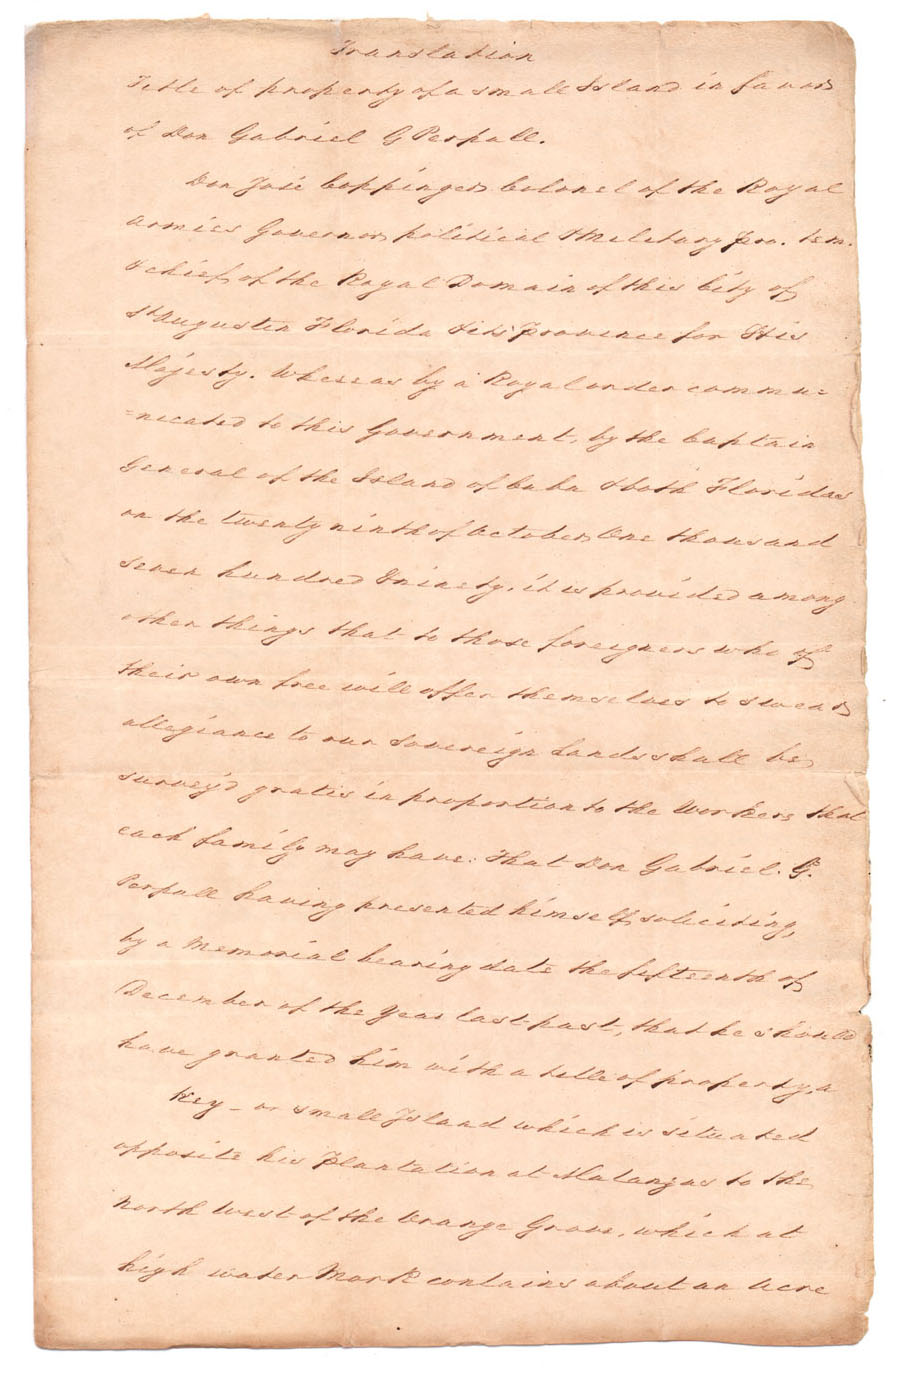 Translation
Title of property of a small Island in favor
of Don Gabriel G Perpall.
Don José Coppinger Colonel of the Royal
Armies Governor, political & Miletary pro. tem.
& chief of the Royal Domain of this City of
St Augustin Florida & its Provence for His
Majesty. Whereas by a Royal order commu=
=necated to this Government, by the Captain
General of the Island of Cuba & both Floridas
on the twenty ninth of October, One thousand
seven hundred & ninety, it is provided among
other things that to those foreigners who of
their own free will offer themselves to swear
allegiance to our Sovereign Lands shall be
survey'd gratis in proportion to the Workers that
each family may have: That Don Gabriel. G.
Perpall having presented himself, soliciting,
by a Memorial bearing date the fifteenth of
December of the Year last past, that he should
have granted him with a title of property, a
Key - or small Island which is situated
opposite his Plantation at Matanzas to the
North West of the Orange Grove, which at
high water Mark contains about an Acre